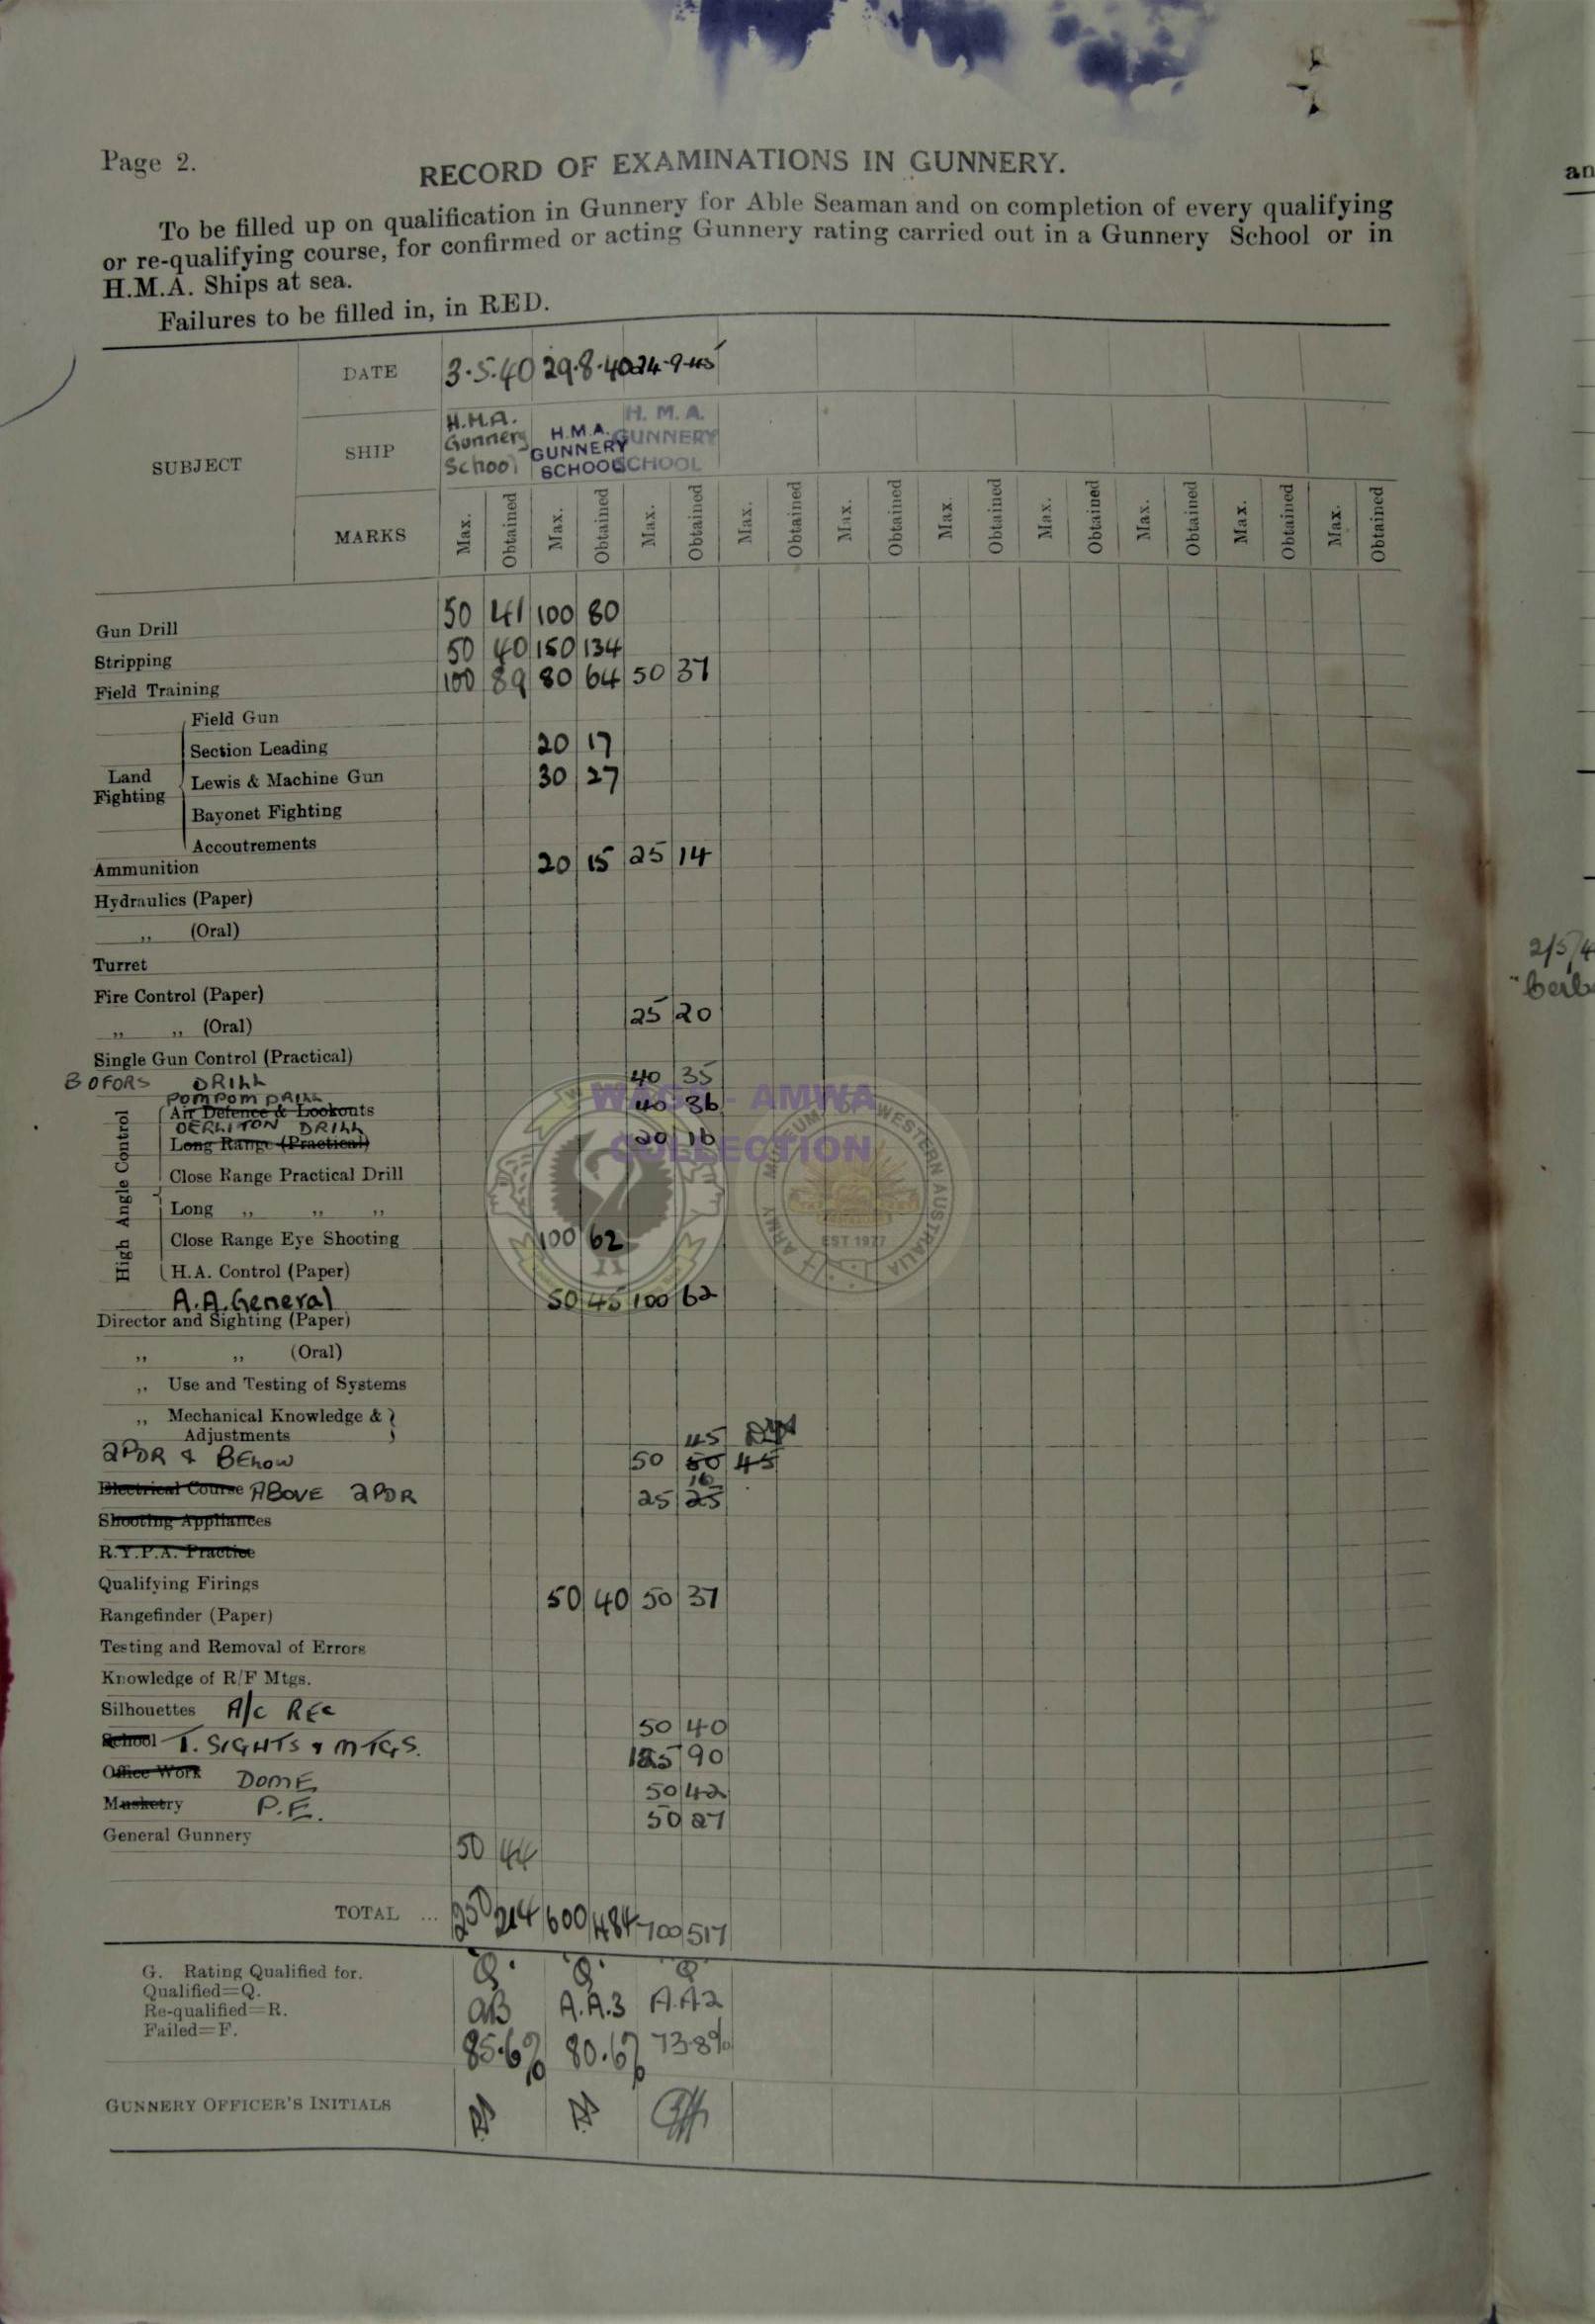 Page 2.
RECORD OF EXAMINATIONS IN GUNNERY.
To be filled up on qualification in Gunnery for Able Seaman and on completion of every qualifying
or re-qualifying course, for confirmed or acting Gunnery rating carried out in a Gunnery School or in
H.M.A. Ships at sea.
Failures to be filled in, in RED.
DATE 3.5.40 29.8.40 24-9-45
SUBJECT
SHIP H.M.A. Gunnery School H.M.A. GUNNERY SCHOOL H. M. A. GUNNERY SCHOOL
MARKS Max. Obtained Max. Obtained Max. Obtained Max. Obtained Max. Obtained Max. Obtained Max. Obtained Max. Obtained Max. Obtained Max. Obtained
Gun Drill 50 41 100 80
Stripping 50 40 150 134
Field Training 100 89 80 64 50 37
Land Fighting
Field Gun
Section Leading 20 17
Lewis & Machine Gun 30 27
Bayonet Fighting
Accoutrements
Ammunition 20 15 25 14
Hydraulics (Paper)
,, (Oral)
Turret
Fire Control (Paper)
,, ,, (Oral) 25 20
Single Gun Control (Practical)
BOFORS DRILL 40 35
POMPOM DRILL 40 36
High Angle Control
Air Defence & Lookouts
OERLITON DRILL 20 16
Long Range (Practical)
Close Range Practical Drill
Long ,, ,, ,,
Close Range Eye Shooting 100 62
H.A. Control (Paper)
A.A. General 50 45 100 62
Director and Sighting (Paper)
,, ,, (Oral)
,, Use and Testing of Systems
,, Mechanical Knowledge &
Adjustments 45
2PDR & BELOW 50 50 45
Electrical Course ABOVE 2PDR 25 25 16
Shooting Appliances
R.Y.P.A. Practice
Qualifying Firings 50 40 50 37
Rangefinder (Paper)
Testing and Removal of Errors
Knowledge of R/F Mtgs.
Silhouettes A/c REC 50 40
School T. SIGHTS & MTGS. 125 90
Office Work DOME 50 42
Musketry P.E. 50 27
General Gunnery 50 44
TOTAL ... 250 214 600 484 700 517
G. Rating Qualified for.
Qualified=Q.
Re-qualified=R.
Failed=F.
Q. Q. Q
AB A.A.3 A.A2
85.6% 80.6% 73.8%
GUNNERY OFFICER'S INITIALS
WAGS - AMWA
COLLECTION
ARMY MUSEUM OF WESTERN AUSTRALIA
EST 1977
an
2/5/4